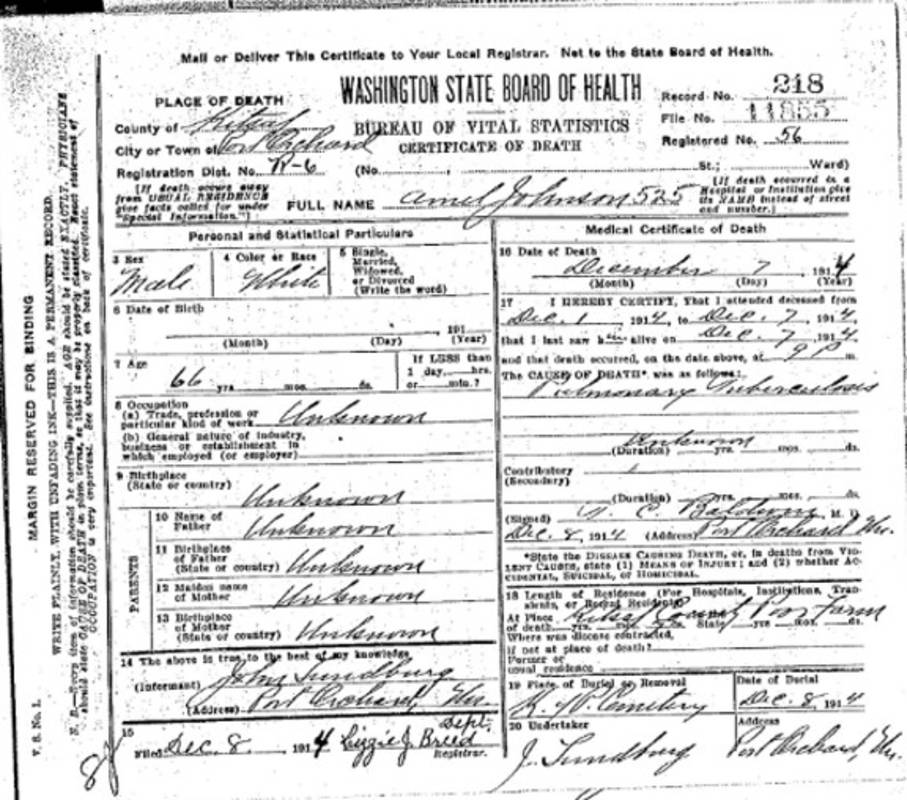 Mail or Deliver This Certificate to Your Local Registrar. Not to the State Board of Health.
WASHINGTON STATE BOARD OF HEALTH
BUREAU OF VITAL STATISTICS
CERTIFICATE OF DEATH
Record No. 218
File No. 11855
Registered No. 56
PLACE OF DEATH
County of Kitsap
City or Town of Port Orchard
Registration Dist. No. W-6 (No. St.; Ward)
[If death occurs away
from USUAL RESIDENCE
give facts called for under
"Special Information."]
FULL NAME Amel Johnson 525
[If death occurred in a
Hospital or Institution give
its NAME instead of street
and number.]
Personal and Statistical Particulars
3 Sex
Male
4 Color or Race
White
5 Single,
Married,
Widowed,
or Divorced
(Write the word)
6 Date of Birth
191
(Month) (Day) (Year)
7 Age
66 yrs. mos. ds.
If LESS than
1 day, hrs.
or min.?
8 Occupation
(a) Trade, profession or
particular kind of work Unknown
(b) General nature of industry,
business or establishment in
which employed (or employer)
9 Birthplace
(State or country)
Unknown
PARENTS
10 Name of
Father
Unknown
11 Birthplace
of Father
(State or country) Unknown
12 Maiden name
of Mother Unknown
13 Birthplace
of Mother
(State or country) Unknown
14 The above is true to the best of my knowledge
(Informant) John Sundburg
(Address) Port Orchard, Wn.
15
Filed Dec. 8, 1914 Lizzie J. Breed
Dept.
Registrar.
Medical Certificate of Death
16 Date of Death
December 7 1914
(Month) (Day) (Year)
17 I HEREBY CERTIFY, That I attended deceased from
Dec. 1 1914, to Dec. 7, 1914,
that I last saw him alive on Dec. 7 1914,
and that death occurred, on the date above, at 9 P m.
The CAUSE OF DEATH* was as follows:
Pulmonary Tuberculosis
Unknown
(Duration) yrs. mos. ds.
Contributory
(Secondary)
(Duration) yrs. mos. ds.
(Signed) C. Baldwin M. D.
Dec. 8, 1914 (Address) Port Orchard Wn.
*State the DISEASE CAUSING DEATH, or, in deaths from VIOLENT CAUSES, state (1) MEANS OF INJURY; and (2) whether ACCIDENTAL, SUICIDAL, or HOMICIDAL.
18 Length of Residence (For Hospitals, Institutions, Transients, or Recent Residents)
At Place Kitsap County Poor Farm
of death yrs. mos. State yrs. mos. ds.
Where was disease contracted,
if not at place of death?
Former or
usual residence
19 Place of Burial or Removal
Cemetery
Date of Burial
Dec. 8, 1914
20 Undertaker
J. Sundburg
Address
Port Orchard, Wn.
MARGIN RESERVED FOR BINDING
WRITE PLAINLY, WITH UNFADING INK—THIS IS A PERMANENT RECORD.
N. B.—Every item of information should be carefully supplied. AGE should be stated EXACTLY. PHYSICIANS
should state CAUSE OF DEATH in plain terms, so that it may be properly classified. Exact statement of
OCCUPATION is very important. See instructions on back of certificate.
V. S. No. 1.